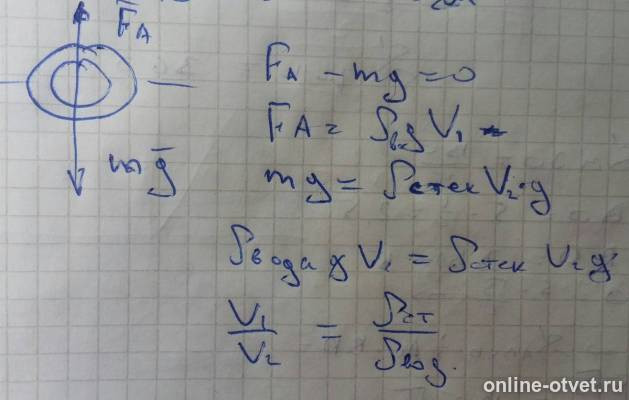 F̅_A
F_A - mg = 0
F_A = ρ_в g V_1
mg̅
mg = ρстек V_2·g
ρвода g V_1 = ρстек V_2 g
V_1/V_2 = ρст/ρвод.
online-otvet.ru